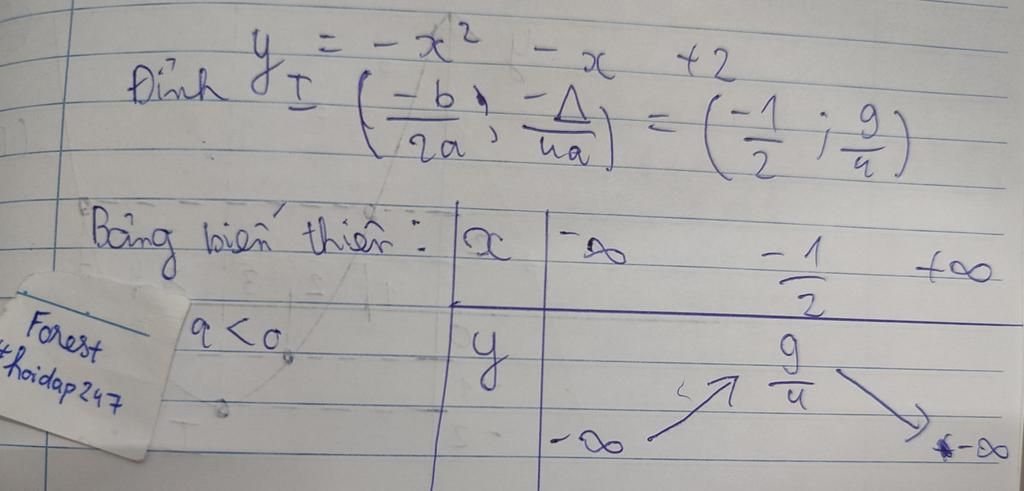 y = -x² - x + 2
Đỉnh I (-b/2a ; -Δ/4a) = (-1/2 ; 9/4)
Bảng biến thiên: x -∞ -1/2 +∞
a < 0 y 9/4
-∞ -∞
Forest
#hoidap247